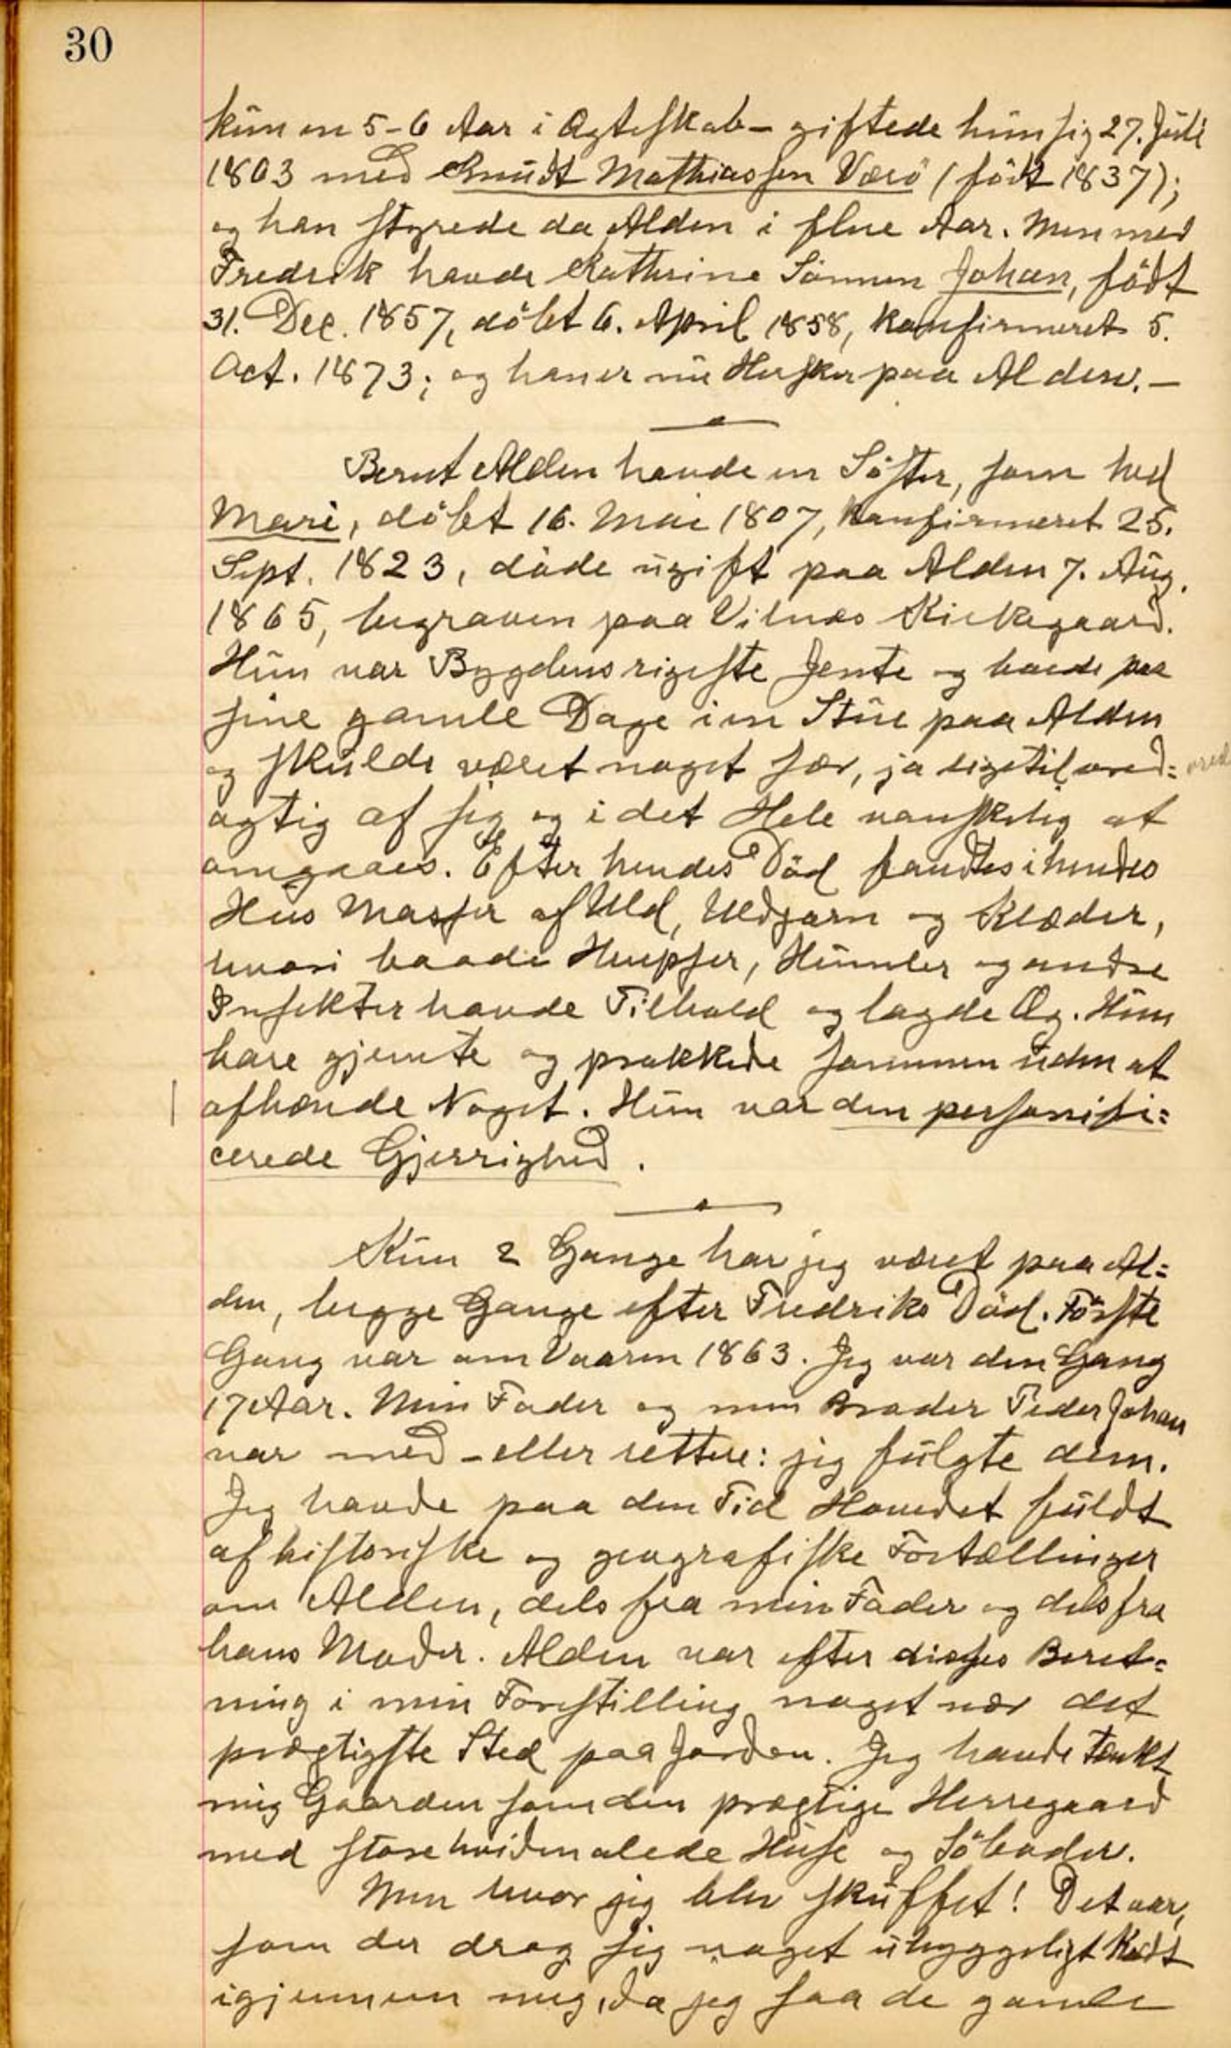 30
kun en 5-6 Aar i Ægteskab - giftede hun sig 27. Juli
1803 med Knudt Mathiassen Værö (födt 1837);
og han styrede da Alden i flere Aar. Men med
Fredrik havde Kathrine Sönnen Johan, födt
31. Dec. 1857, döbt 6. April 1858, konfirmeret 5.
Oct. 1873; og han er nu Hersker paa Alden. -
Bernt Alden havde en Söster, som hed
Mari, döbt 16. Mai 1807, konfirmeret 25.
Sept. 1823, döde ugift paa Alden 7. Aug.
1865, begraven paa Vilnæs Kirkegaard.
Hun var Bygdens rigeste Jente og boede paa
sine gamle Dage i en Stue paa Alden
og skulde været noget sær, ja ligetil vred= vred
agtig af sig og i det Hele vanskelig at
omgaaes. Efter hendes Död fandtes i hendes
Hus Masser af Uld, Uldgarn og Klæder,
hvori baade Hvepser, Humler og andre
Insekter havde Tilhold og lagde Æg. Hun
bare gjemte og prakkede sammen uden at
afhænde Noget. Hun var den personifi=
cerede Gjerrighed.
Kun 2 Gange har jeg været paa Al=
den, begge Gange efter Fredriks Död. Förste
Gang var om Vaaren 1863. Jeg var den Gang
17 Aar. Min Fader og min Broder Peder Johan
var med - eller rettere: jeg fulgte dem.
Jeg havde paa den Tid Hovedet fuldt
af historiske og geografiske Fortællinger
om Alden, dels fra min Fader og dels fra
hans Moder. Alden var efter disses Beret=
ning i min Forestilling noget nær det
prægtigste Sted paa Jorden. Jeg havde tænkt
mig Gaarden som den prægtige Herregaard
med store hvidmalede Huse og Söboder.
Men hvor jeg blev skuffet! Det var,
som der drog sig noget uhyggeligt koldt
igjennem mig, da jeg saa de gamle